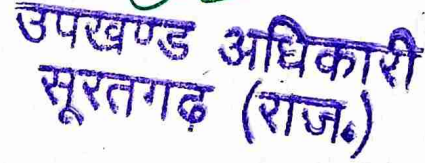 उपखण्ड अधिकारी
सूरतगढ (राज॰)